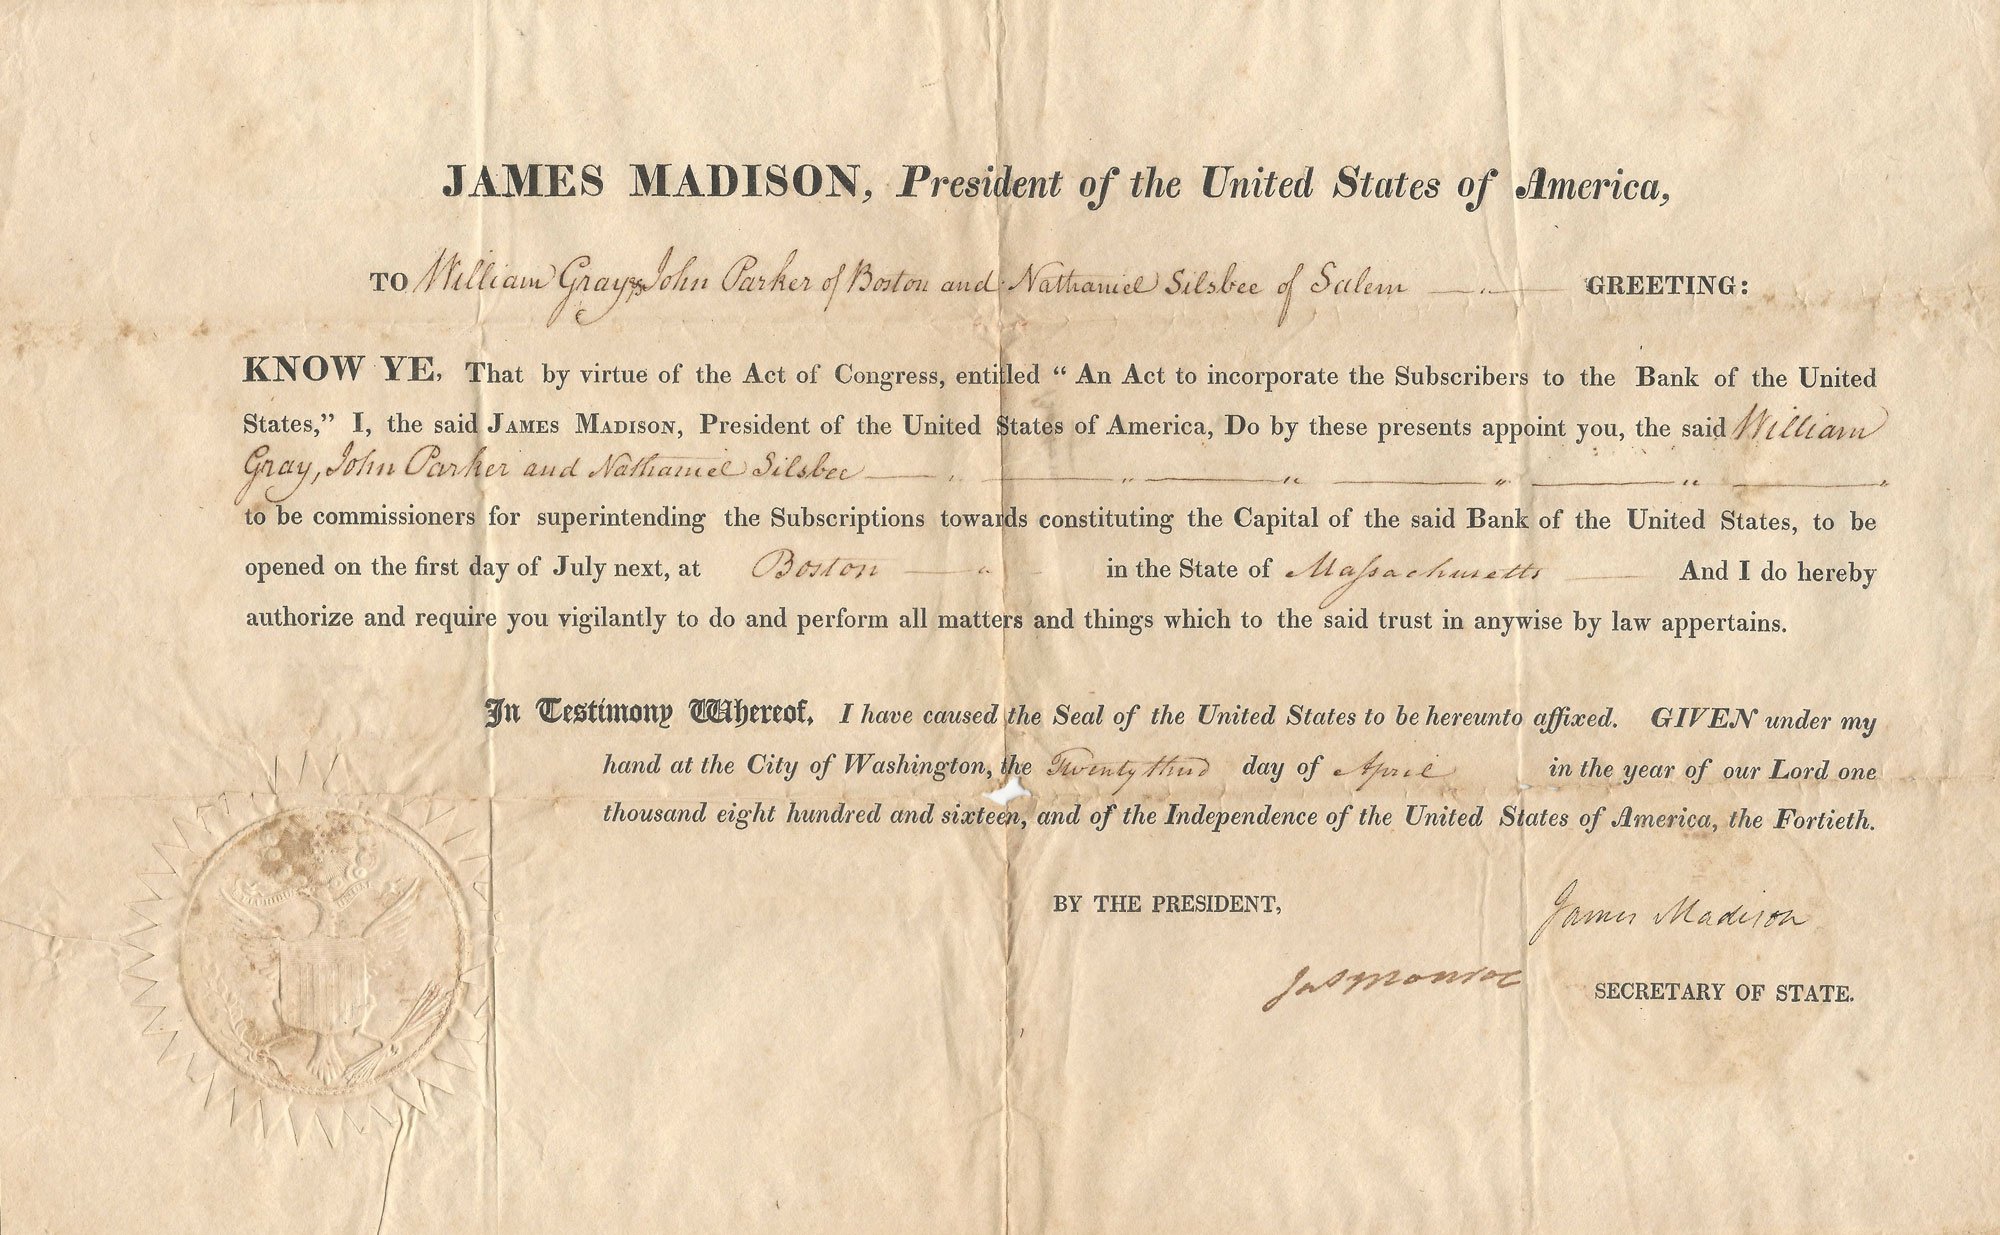 JAMES MADISON, President of the United States of America,
TO William Gray, John Parker of Boston and Nathaniel Silsbee of Salem GREETING:
KNOW YE, That by virtue of the Act of Congress, entitled “ An Act to incorporate the Subscribers to the Bank of the United
States,” I, the said JAMES MADISON, President of the United States of America, Do by these presents appoint you, the said William
Gray, John Parker and Nathaniel Silsbee
to be commissioners for superintending the Subscriptions towards constituting the Capital of the said Bank of the United States, to be
opened on the first day of July next, at Boston in the State of Maſsachusetts And I do hereby
authorize and require you vigilantly to do and perform all matters and things which to the said trust in anywise by law appertains.
In Testimony Whereof, I have caused the Seal of the United States to be hereunto affixed. GIVEN under my
hand at the City of Washington, the Twenty third day of April in the year of our Lord one
thousand eight hundred and sixteen, and of the Independence of the United States of America, the Fortieth.
BY THE PRESIDENT, James Madison
Jas Monroe SECRETARY OF STATE.